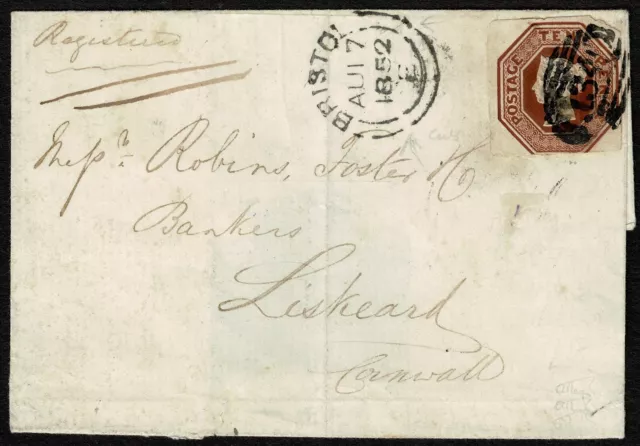 Registered
BRISTOL
AU 17
1852
POSTAGE TEN PENCE
134
Messrs Robins, Foster & Co
Bankers
Liskeard
Cornwall